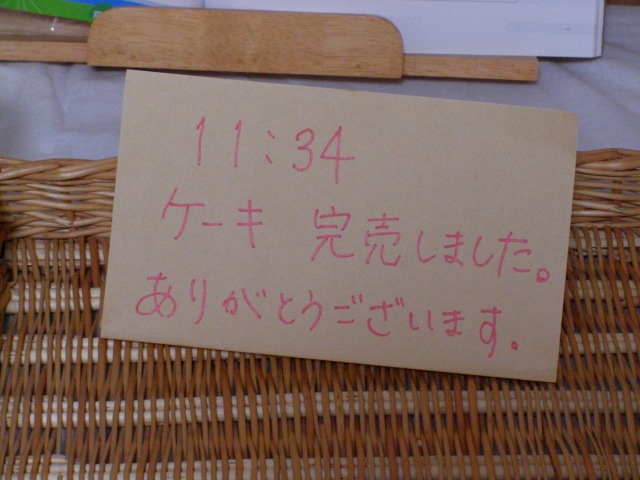 11:34
ケーキ 完売しました。
ありがとうございます。